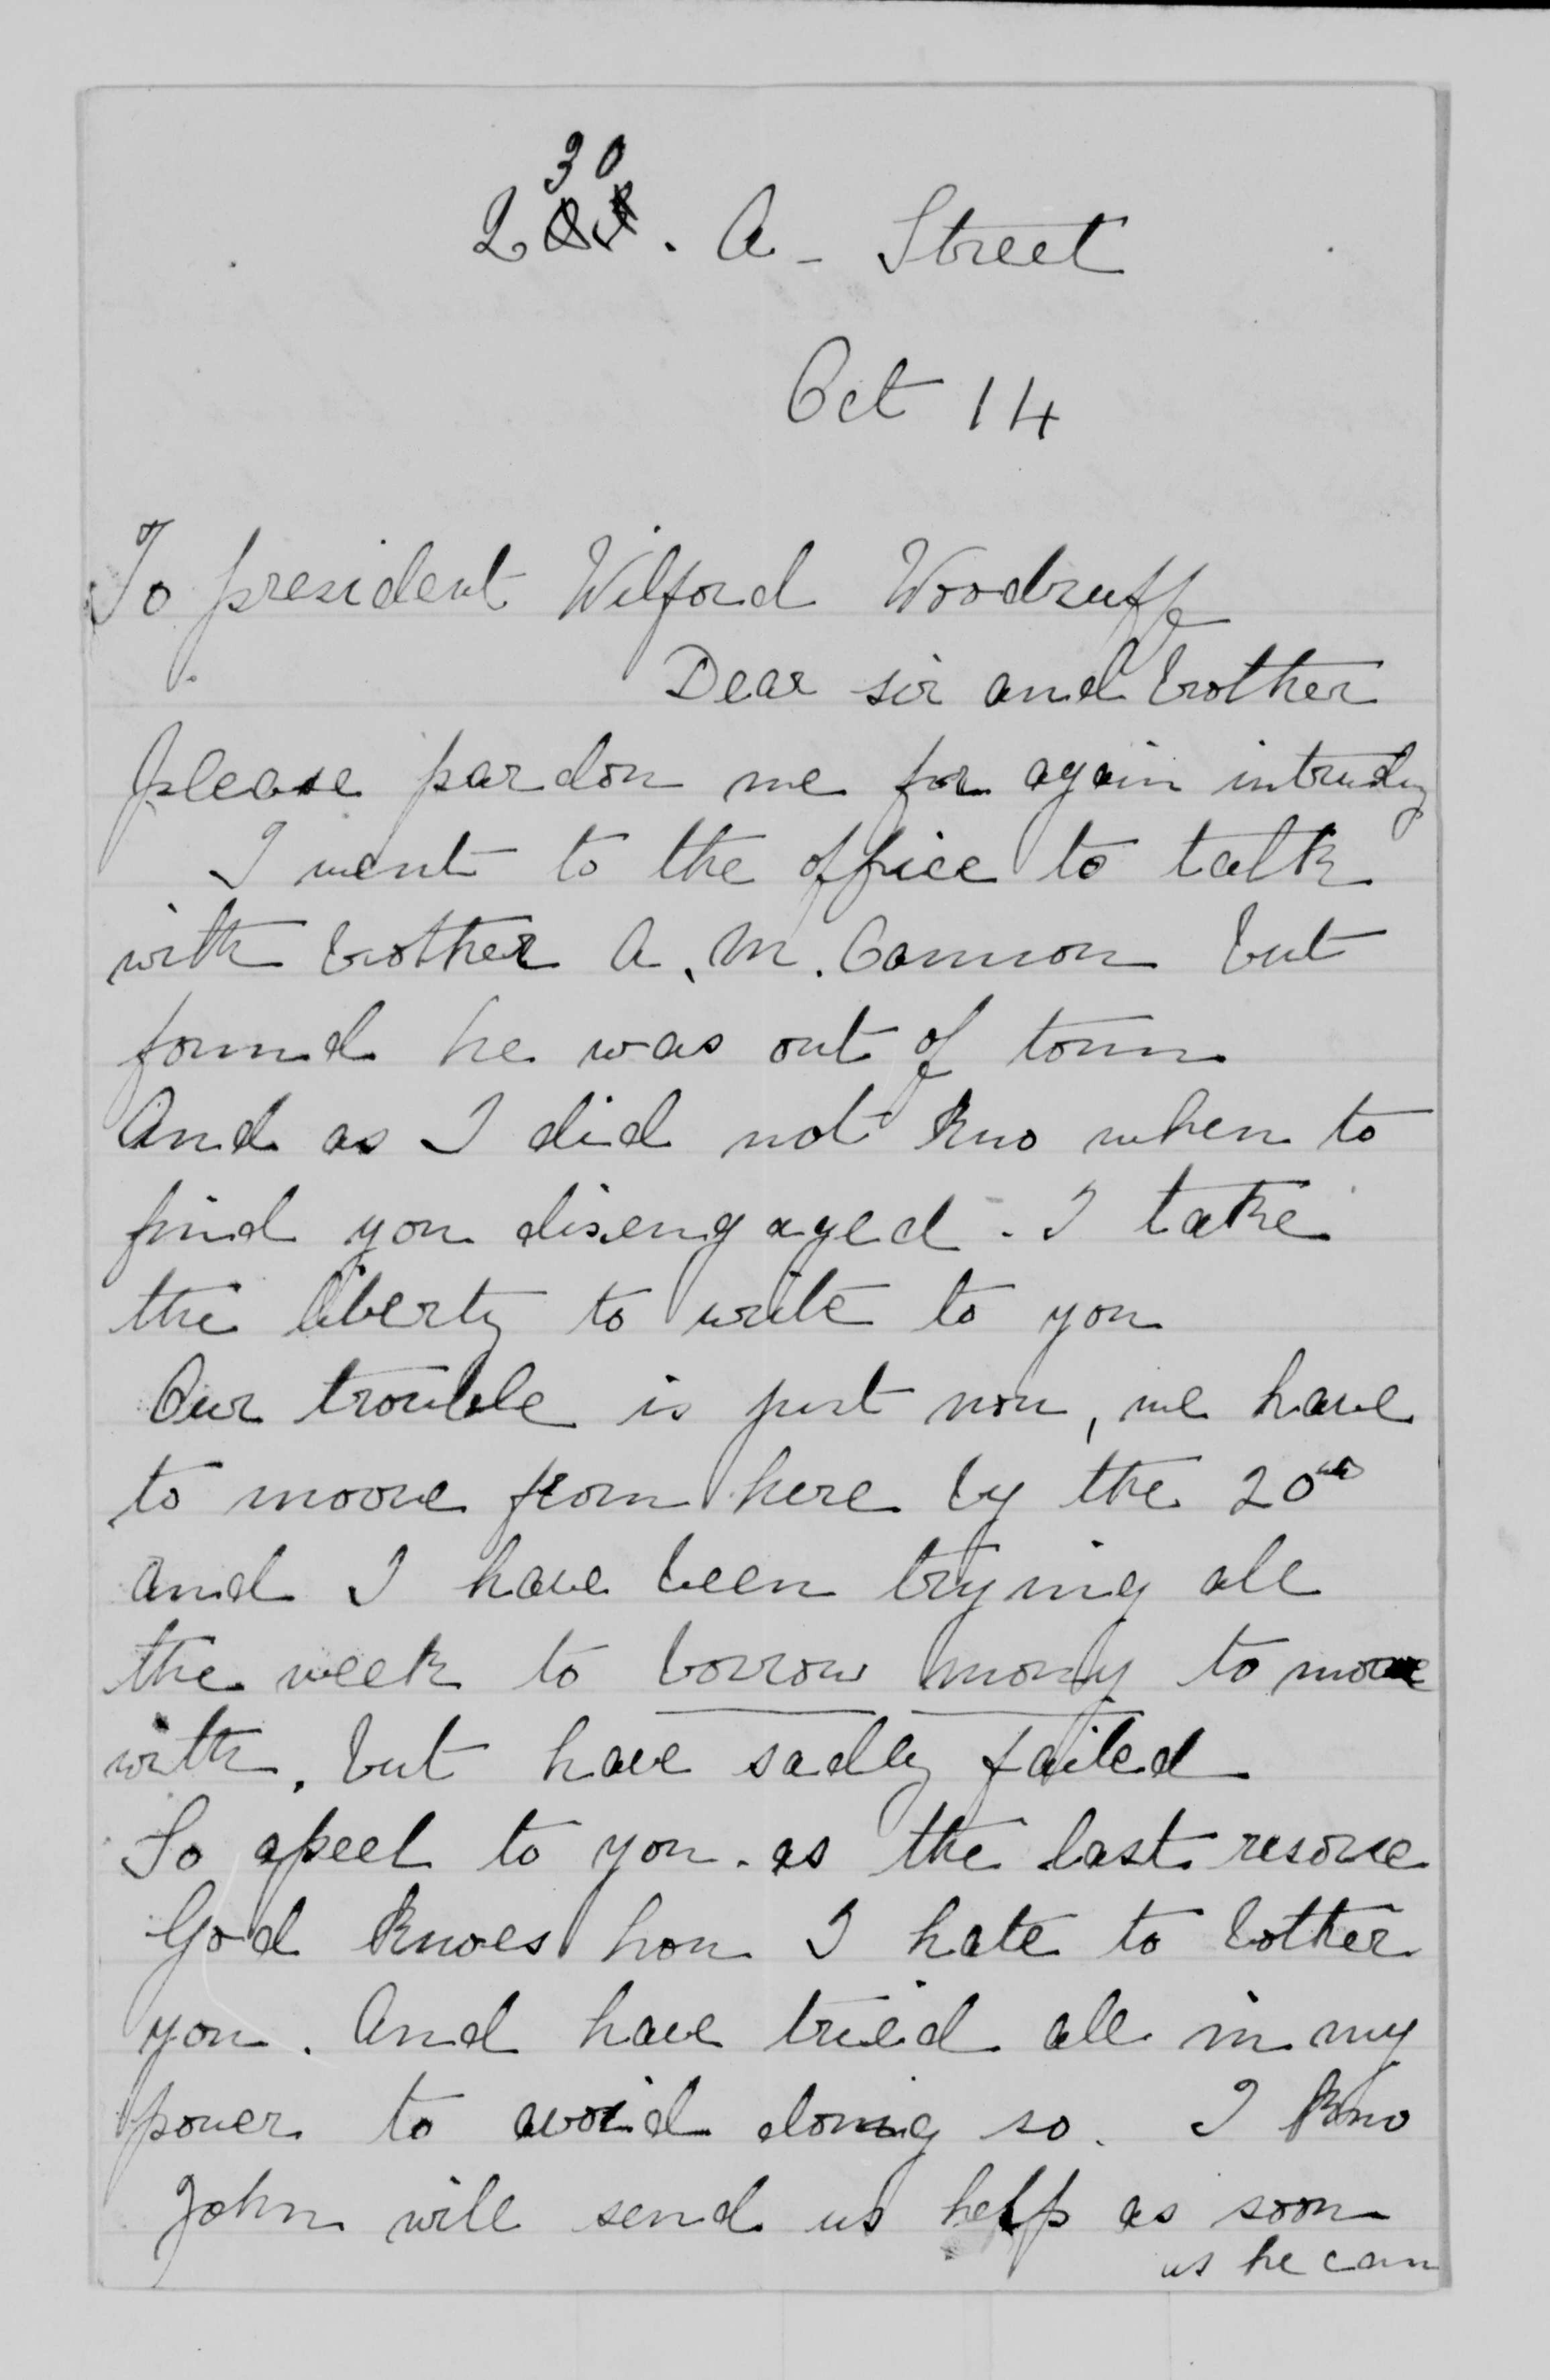 30
2 . A - Street
Oct 14
To president Wilford Woodruff
Dear sir and brother
please pardon me for again intruding
I went to the office to talk
with brother A. M. Cannon but
found he was out of town
And as I did not kno when to
find you disengaged - I take
the liberty to write to you
Our trouble is just now, we have
to moove from here by the 20th
and I have been trying all
the week to borrow mony to moove
with, but have sadly failed
So apeel to you. as the last resorce
God knoes how I hate to bother
you. And have tried all in my
power to avoid doing so. I kno
John will send us help as soon
as he can